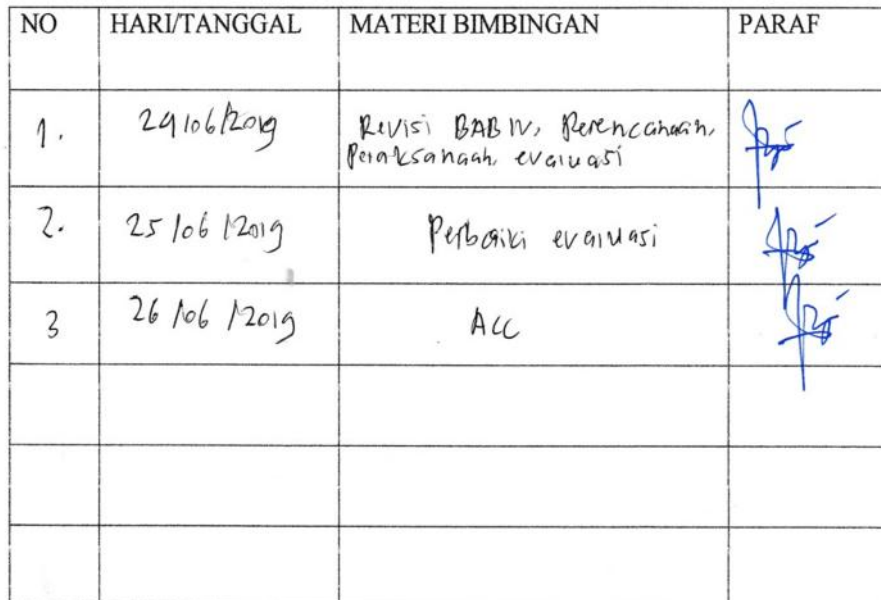 NO HARI/TANGGAL MATERI BIMBINGAN PARAF
1. 24/06/2019 Revisi BAB IV, Perencanaan,
Pelaksanaan, evaluasi
2. 25/06/2019 Perbaiki evaluasi
3 26/06/2019 Acc